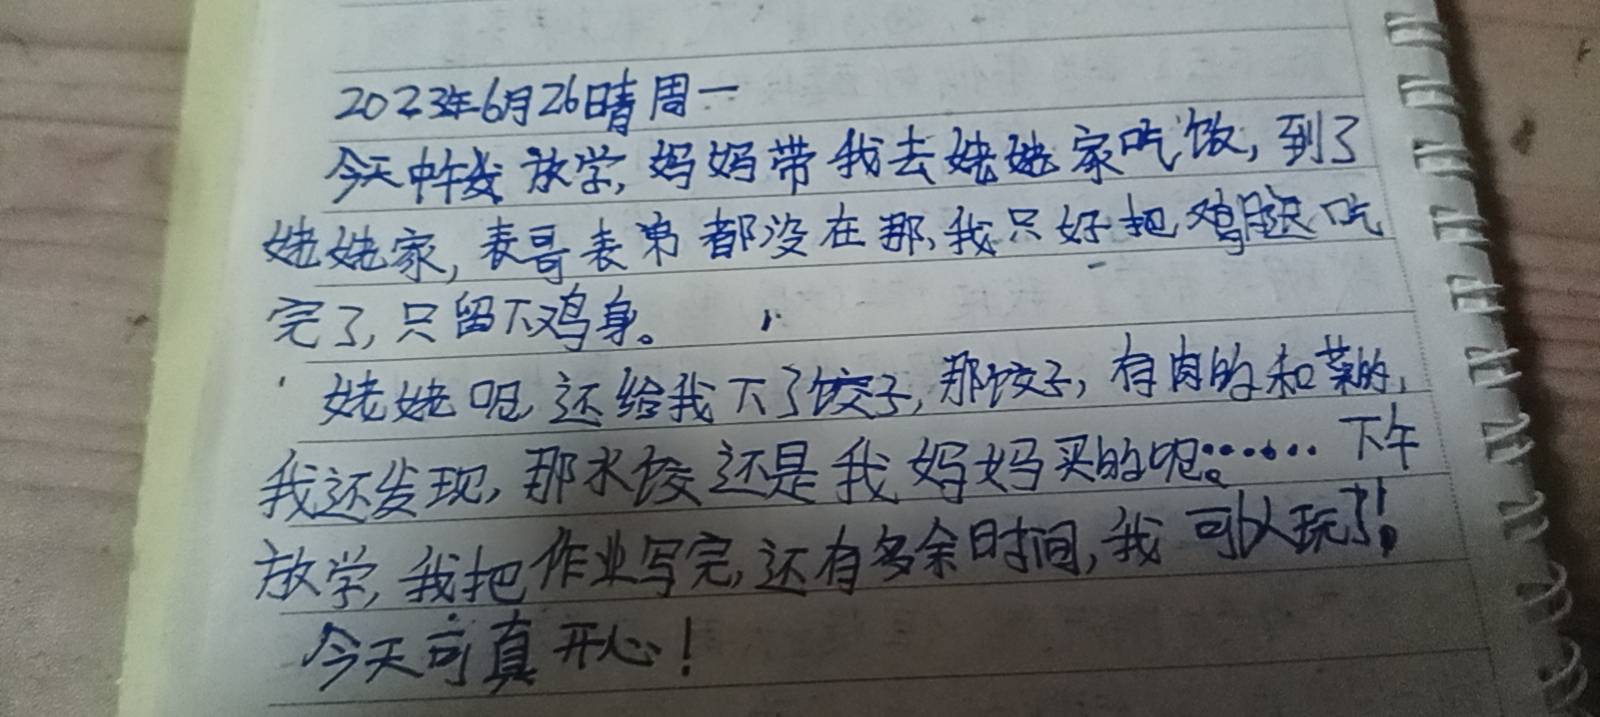 2023年6月26晴 周一
今天中午 放学,妈妈带我去姥姥家吃饭,到了
姥姥家,表哥表弟都没在那,我只好把鸡腿吃
完了,只留下鸡身。
姥姥呢,还给我下了饺子,那饺子,有肉的和菜的,
我还发现,那水饺还是我妈妈买的呢。…… 下午
放学,我把作业写完,还有多余时间,我可以玩了!
今天可真开心!